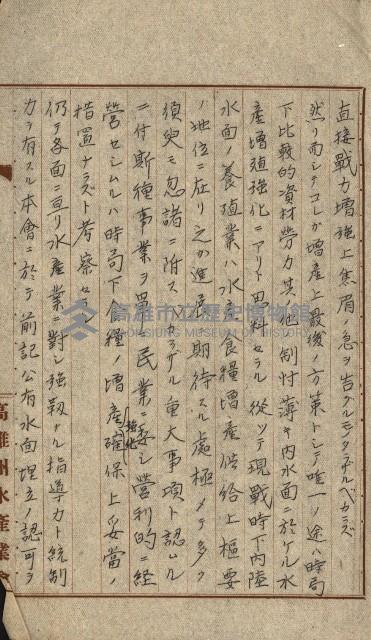 直接戰力增強上焦眉ノ急ヲ告グルモノタルベカラズ
然リ而シテコレガ增產上最後ノ方策トシテ唯一ノ途ハ時局
下比較的資材勞力其他制肘薄キ內水面ニ於ケル水
產增殖強化ニアリト思料セラル從ツテ現戰時下內陸
水面ノ養殖業ハ水產食糧增產供給上樞要
ノ地位ニ在リ之ガ進展ニ期待スル處極メテ多ク
須臾モ忽諸ニ附スベカラザル重大事項ト認ムル
ニ付斯種事業ヲ單ニ民業ニ委シ營利的ニ經
營セシムルハ時局下食糧ノ增產確保上妥當ノ
強化
措置ナラズト考察セラ
仍テ各面ニ亘リ水產業ニ對シ強靱ナル指導力ト統制
力ヲ有スル本會ニ於テ前記公有水面埋立ノ認可ヲ
高雄州水產業會
高雄市立歷史博物館
KAOHSIUNG MUSEUM OF HISTORY